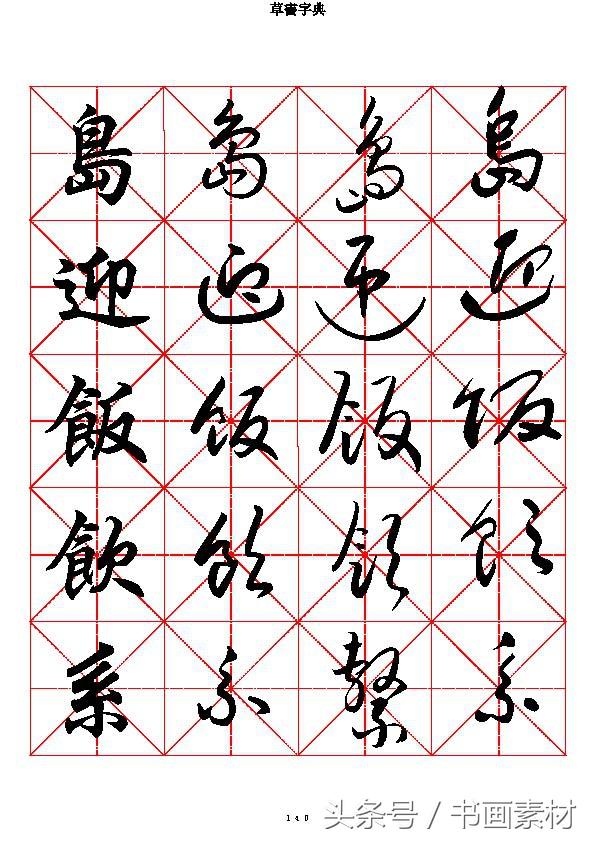 草書字典
島 島 島 島
迎 迎 迎 迎
飯 飯 飯 飯
飲 飲 飲 飲
系 系 繫 系
140
头条号 / 书画素材